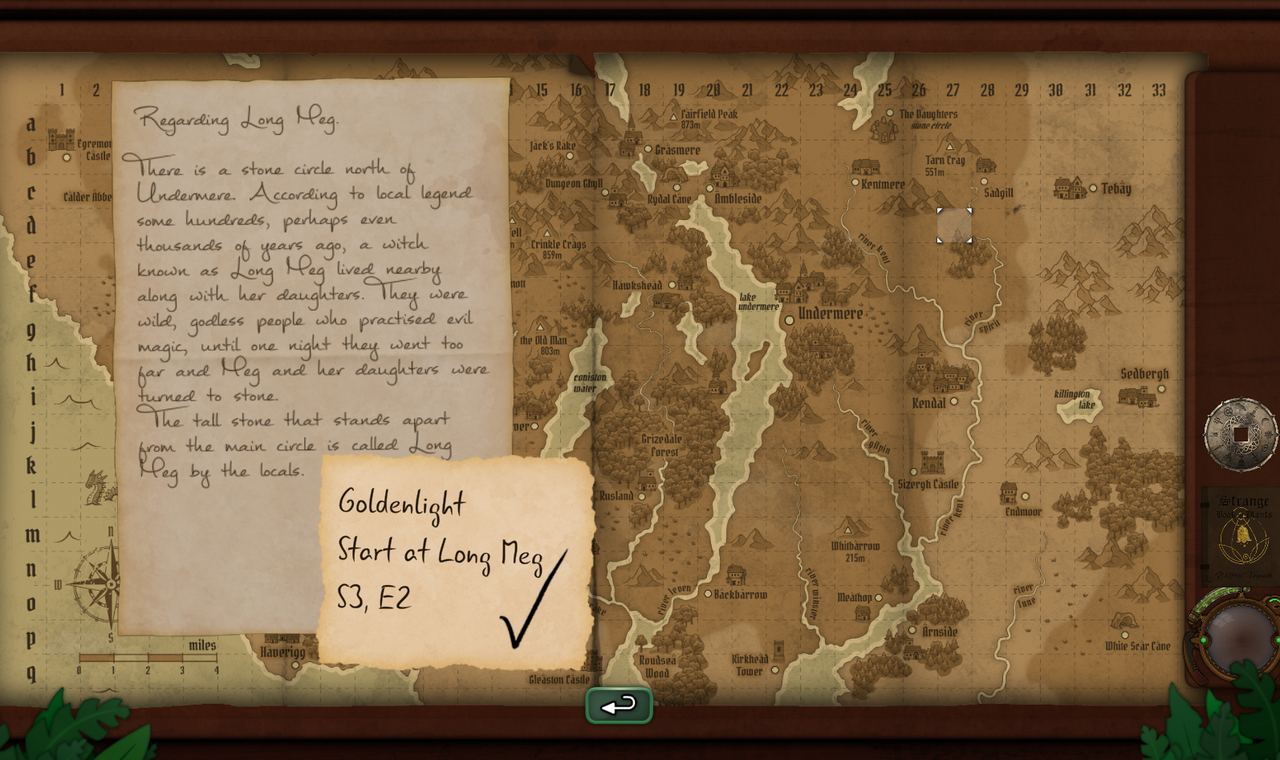 1 2 15 16 17 18 19 20 21 22 23 24 25 26 27 28 29 30 31 32 33
a
b
c
d
e
f
g
h
i
j
k
l
m
n
o
p
q
Regarding Long Meg.
There is a stone circle north of
Undermere. According to local legend
some hundreds, perhaps even
thousands of years ago, a witch
known as Long Meg lived nearby
along with her daughters. They were
wild, godless people who practised evil
magic, until one night they went too
far and Meg and her daughters were
turned to stone.
The tall stone that stands apart
from the main circle is called Long
Meg by the locals.
Goldenlight
Start at Long Meg
S3, E2
Castle
Calder
Jack's Rake
Dungeon Ghyll
Crinkle Crags
859m
the Old Man
803m
Fairfield Peak
873m
Grasmere
Rydal Cave
Ambleside
Hawkshead
lake
undermere
Undermere
coniston
water
Grizedale
Forest
Rusland
river leven
Backbarrow
Roudsea
Wood
Gleaston Castle
Haverigg
Kirkhead
Tower
The Daughters
stone circle
Tarn Crag
551m
Kentmere
Sadgill
Tebay
river kent
river
sprit
Kendal
river gilpin
Sizergh Castle
river kent
Whitbarrow
215m
river winster
Meathop
Arnside
Endmoor
killington
lake
Sedbergh
river
lune
White Scar Cave
N
W
S
miles
0 1 2 3 4
Strange